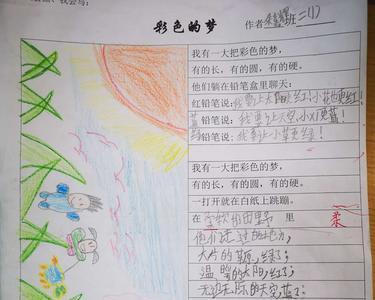 我会写：
彩色的梦
作者 班二(1)
我有一大把彩色的梦，
有的长，有的圆，有的硬。
他们躺在铅笔盒里聊天：
红铅笔说：我要上太阳更红！小花也更红！
蓝铅笔说：我要上天空，小 更蓝！
绿铅笔说：我要上小草更绿！
我有一大把彩色的梦，
有的长，有的圆，有的硬。
一打开就在白纸上跳蹦。
在 的田野 里
柔
他们走过的地方，
大片的草原，绿了；
温 的太阳，红了；
无边无际的天空，蓝了；